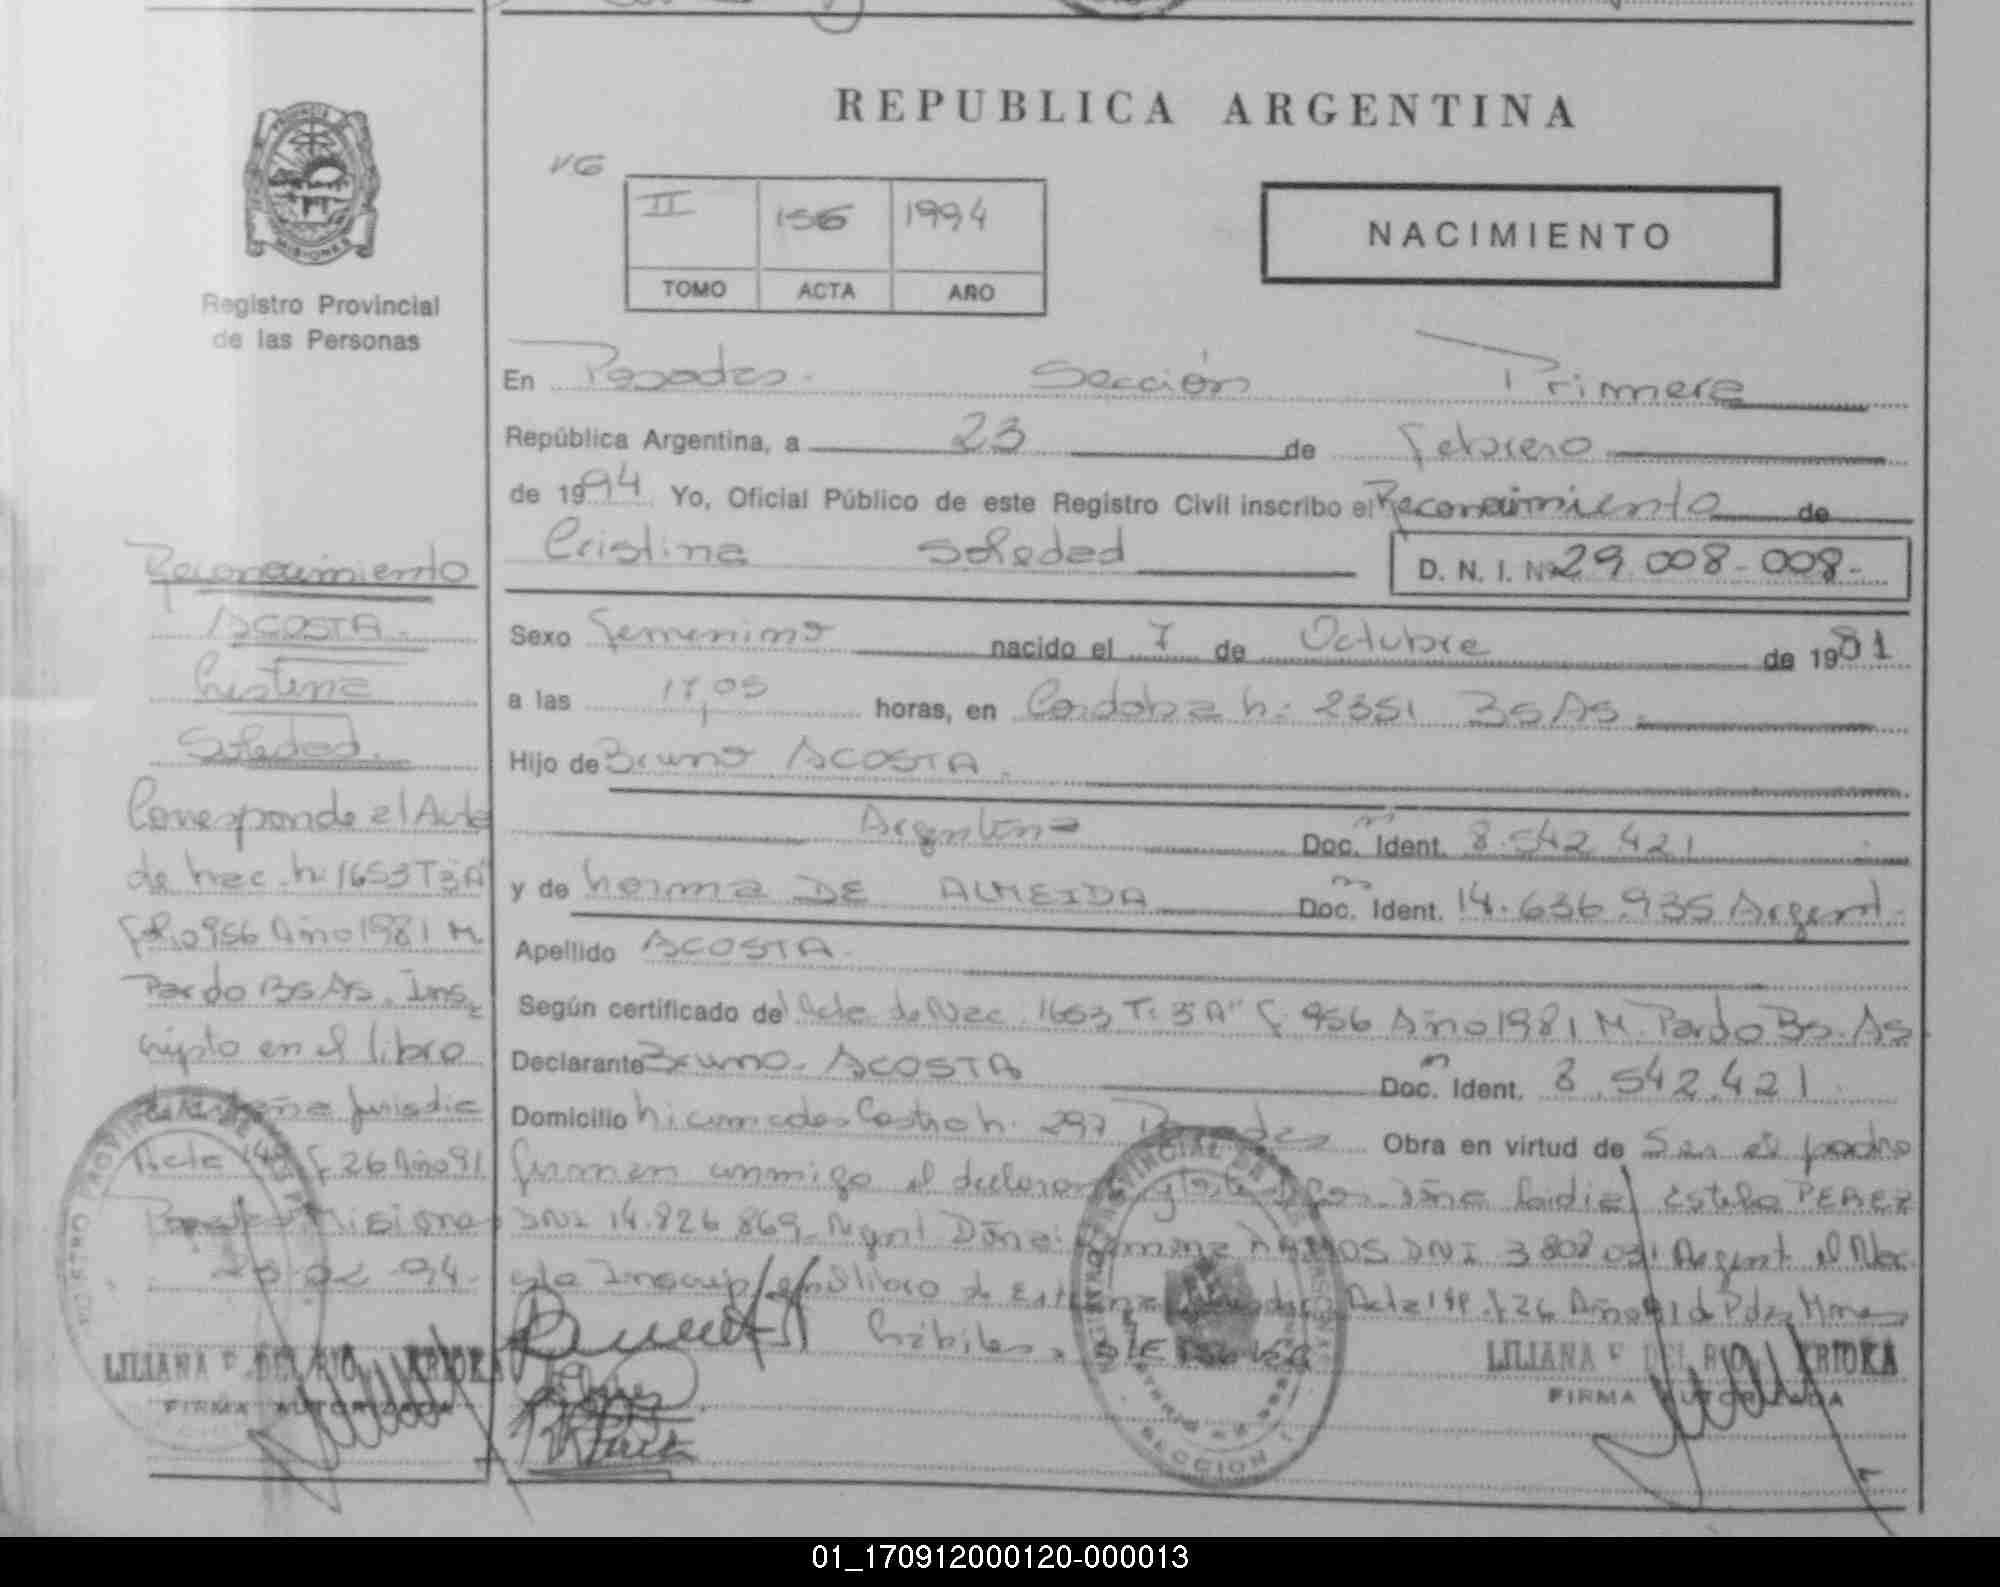 REPUBLICA ARGENTINA
PROVINCIA DE
MISIONES
Registro Provincial
de las Personas
VG
II 156 1994
TOMO ACTA AÑO
NACIMIENTO
En Posadas. Sección Primera
República Argentina, a 23 de febrero
de 1994 Yo, Oficial Público de este Registro Civil inscribo el Reconocimiento de
Cristina Soledad D. N. I. Nº 29.008-008-
Sexo femenino nacido el 7 de Octubre de 1981
a las 17,05 horas, en Cordoba n: 2351 Bs As.
Hijo de Bruno ACOSTA.
Argentina Doc. Ident. 8.542.421
y de Norma DE ALMEIDA Doc. Ident. 14.636.935 Argent.
Apellido ACOSTA.
Según certificado de Acta de Nac. 1653 T: 3 A" f. 956 Año 1981 M. Pardo Bs. As
Declarante Bruno. ACOSTA Doc. Ident. 8.542.421
Domicilio Nicomedes Castro n. 297 Posadas Obra en virtud de Ser el padre
firman conmigo el declarante y testigos Doña Lidia Estela PEREZ
DNI 14.826.869. Argnt Doña RAMOS DNI 3 802 031 Argent. el Nac.
esta Inscrip en el libro de Extraña Acta 148 f 26 Año 91 de Pdas Mnes
hábiles.
LILIANA DEL RIO KRIOKA
FIRMA AUTORIZADA
SECCION 1
Reconocimiento
ACOSTA.
Cristina
Soledad.
Corresponde al Acta
de Nac. n: 1653 T 3 A"
folio 956 Año 1981 M.
Pardo Bs As. Ins-
cripto en el libro
de Extraña Jurisdic
Acta 148 f. 26 Año 91
Posadas Misiones
23-02-94.
LILIANA DEL RIO KRIOKA
FIRMA AUTORIZADA
01_170912000120-000013